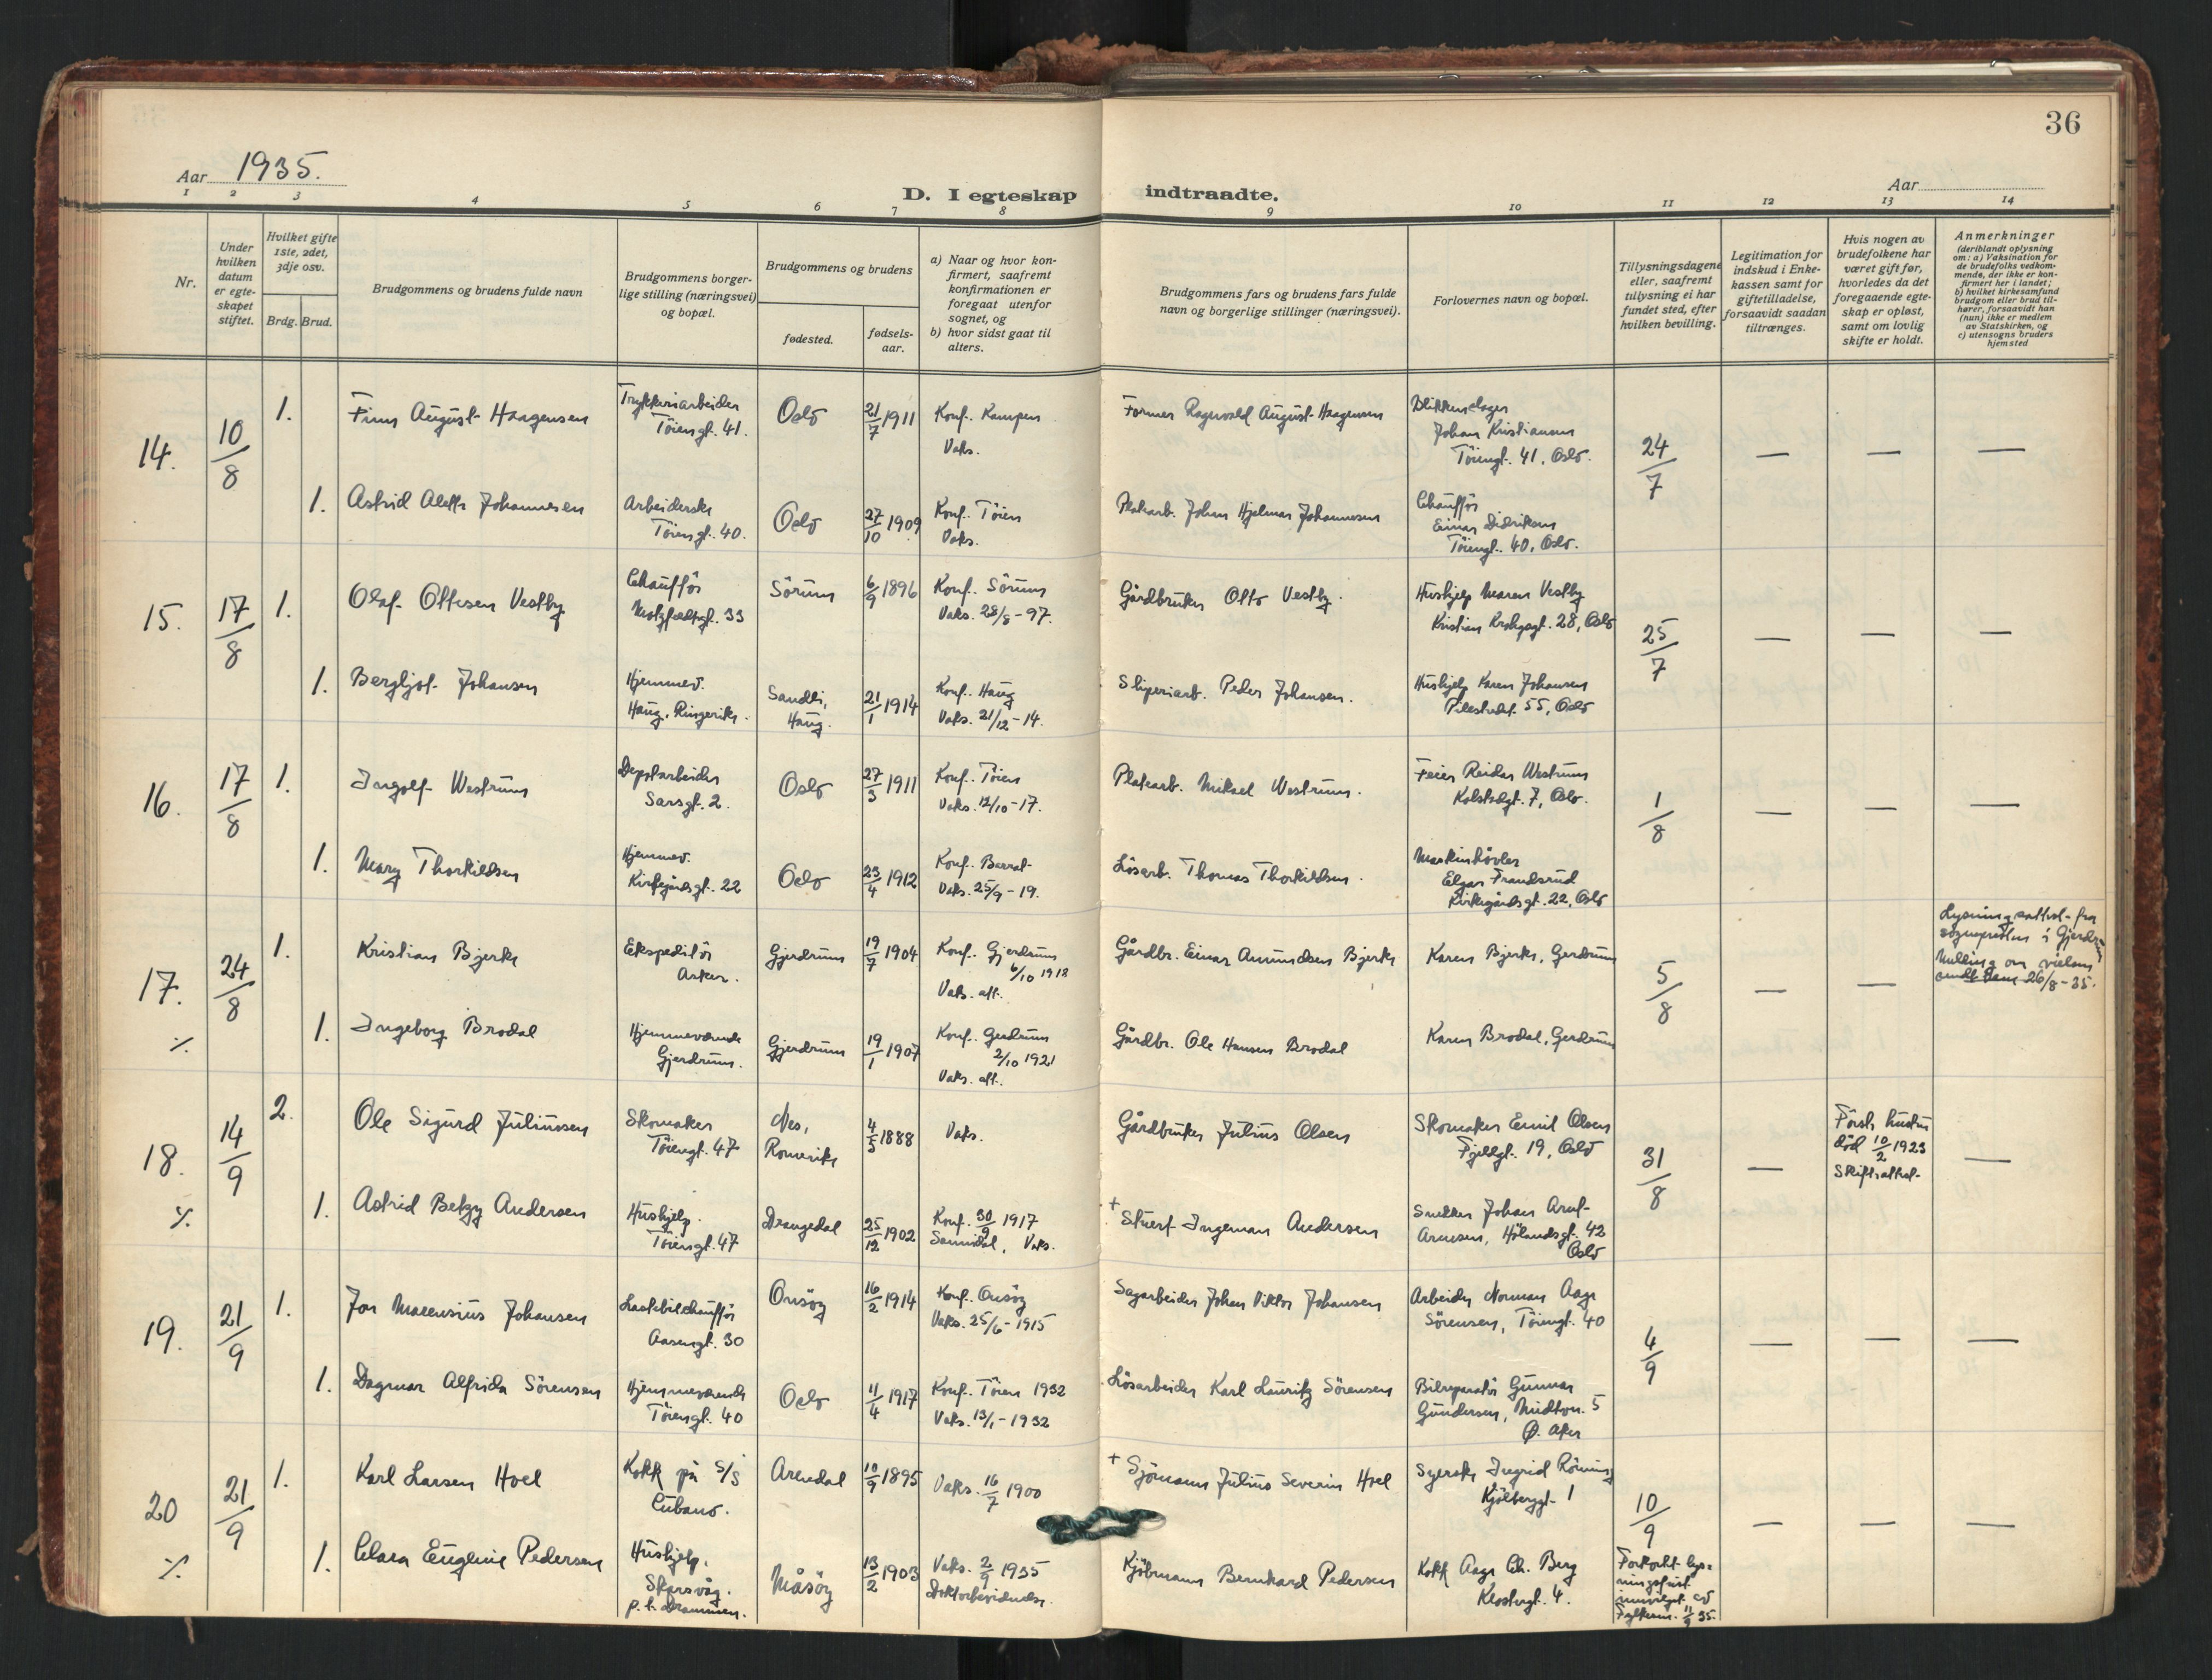 36
Aar 1935.
D. I egteskap indtraadte.
Aar
1 2 3 4 5 6 7 8 9 10 11 12 13 14
Nr.
Under hvilken datum er egteskapet stiftet.
Hvilket gifte 1ste, 2det, 3dje osv.
Brdg. Brud.
Brudgommens og brudens fulde navn
Brudgommens borgerlige stilling (næringsvei) og bopæl.
Brudgommens og brudens
fødested.
fødselsaar.
a) Naar og hvor konfirmert, saafremt konfirmationen er foregaat utenfor sognet, og
b) hvor sidst gaat til alters.
Brudgommens fars og brudens fars fulde navn og borgerlige stillinger (næringsvei).
Forlovernes navn og bopæl.
Tillysningsdagene eller, saafremt tillysning ei har fundet sted, efter hvilken bevilling.
Legitimation for indskud i Enkekassen samt for giftetilladelse, forsaavidt saadan tiltrænges.
Hvis nogen av brudefolkene har været gift før, hvorledes da det foregaaende egteskap er opløst, samt om lovlig skifte er holdt.
Anmerkninger
(deriblandt oplysning om: a) Vaksination for de brudefolks vedkommende, der ikke er konfirmert her i landet;
b) hvilket kirkesamfund brudgom eller brud tilhører, forsaavidt han (hun) ikke er medlem av Statskirken, og
c) utensogns bruders hjemsted
14. 10/8 1. Finn August Haagensen Trykkeriarbeider Töiengt. 41. Oslo 21/7 1911 Konf. Kampen Vaks. Former Ragnvald August Haagensen Blikkenslager Johan Kristiansen Töiengt. 41, Oslo. 24/7 — — —
1. Astrid Aletta Johannesen Arbeiderske Töiengt. 40. Oslo 27/10 1909 Konf. Töien Vaks. Platearb. Johan Hjelmar Johannesen Chaufför Einar Didriksen Töiengt. 40, Oslo.
15. 17/8 1. Olaf Ottesen Vestby Chaufför Motzfeldtsgt. 33 Sörum 6/9 1896 Konf. Sörum Vaks. 28/8-97. Gårdbruker Otto Vestby. Hushjelp Maren Vestby Kristian Krohgsgt. 28, Oslo 25/7 — — —
1. Bergljot Johansen Hjemmev. Haug, Ringerike. Sandli, Haug. 21/1 1914 Konf. Haug Vaks. 21/12-14. Sliperiarb. Peder Johansen. Hushjelp Karen Johansen Pilestredet 55, Oslo
16. 17/8 1. Ingolf Westrum Depotarbeider Sarsgt. 2. Oslo 27/3 1911 Konf. Töien Vaks. 12/10-17. Platearb. Mikael Westrum. Feier Reidar Westrum Kolstadgt. 7, Oslo. 1/8 — — —
1. Mary Thorkildsen Hjemmev. Kirkegårdsgt. 22 Oslo 23/4 1912 Konf. Barrat Vaks. 25/9-19. Lösarb. Thomas Thorkildsen. Maskinhövler Elgar Frandsrud Kirkegårdsgt. 22, Oslo
17. 24/8 1. Kristian Bjerke Ekspeditör Aker. Gjerdrum 19/7 1904 Konf. Gjerdrum 6/10 1918 Vaks. att. Gårdbr. Einar Amundsen Bjerke Karen Bjerke, Gerdrum 5/8 — — Lysningsattest fra sognepresten i Gjerdrum Melding om vielsen sendt 26/8-35.
% 1. Ingeborg Brodal Hjemmeværende Gjerdrum. Gjerdrum 19/1 1907 Konf. Gerdrum 2/10 1921 Vaks. att. Gårdbr. Ole Hansen Brodal Karen Brodal, Gerdrum
18. 14/9 2. Ole Sigurd Juliussen Skomaker Töiengt. 47 Nes, Romerike 4/5 1888 Vaks. Gårdbruker Julius Olsen Skomaker Emil Olsen Fjellgt. 19, Oslo 31/8 — Förste hustru död 10/2 1923 Skifteattest —
% 1. Astrid Betzy Andersen Hushjelp. Töiengt. 47 Drangedal 25/12 1902 Konf. 30/9 1917 Sannidal, Vaks. + Stuert Ingeman Andersen Snekker Johan Arnt Arnesen, Hölandsgt. 42 Oslo
19. 21/9 1. Jon Johansen Lastebilchaufför Aasengt. 30 Onsöy 16/2 1914 Konf. Onsöy Vaks. 25/6-1915 Sagarbeider Johan Viktor Johansen Arbeider Norman Aage Sörensen, Töiengt. 40 4/9 — — —
1. Dagmar Alfrida Sörensen Hjemmeværende Töiengt. 40 Oslo 11/4 1917 Konf. Töien 1932 Vaks. 13/1-1932 Lösarbeider Karl Lauritz Sörensen Bilreparatör Gunnar Gundersen, Midtvn. 5 Ø. Aker
20 21/9 1. Karl Larsen Hoel Kokk på S/S Cubano. Arendal 10/9 1895 Vaks. 16/7 1900 + Sjömann Julius Severin Hoel Syerske Ingrid Röining Kjölberggt. 1 10/9 — — —
% 1. Clara Eugenie Pedersen Hushjelp. Skarsvåg. p.t. Drammen. Måsöy 13/2 1903 Vaks. 2/9 1935 Doktorbevidnelse. Kjöbmann Bernhard Pedersen Kokk Aage Ch. Berg Klostergt. 4. Forkortet lysningsfrist innvilget av Fylkesm. 11/9 35.